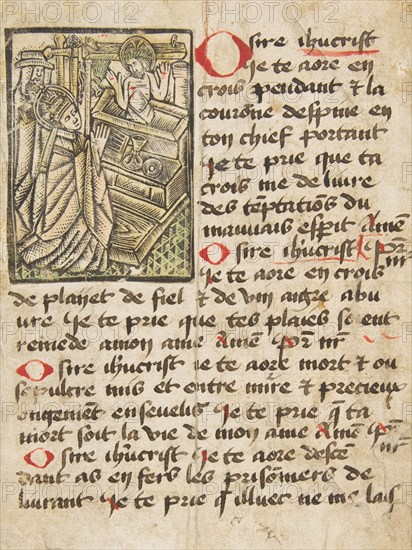 O sire ihucrist
Je te aore en
crois pendant & la
couronne despine en
ton chief portant
Je te prie que ta
crois me deliure
des temptations du
mauuais esperit Amen
O sire ihucrist
Je te aore en crois
de plaiet de fiel & de vin aigre abu
ure Je te prie que tes plaies soient
remede a mon ame Amen
O sire ihucrist Je te aore mort & ou
sepulcre mis et entre mirre & precieux
ongement enseuelis Je te prie q̃ ta
mort soit la vie de mon ame Amen
O sire ihucrist Je te aore desce
dant as en fers les prisonniers de
liurant Je te prie q̃ illuec ne me lais